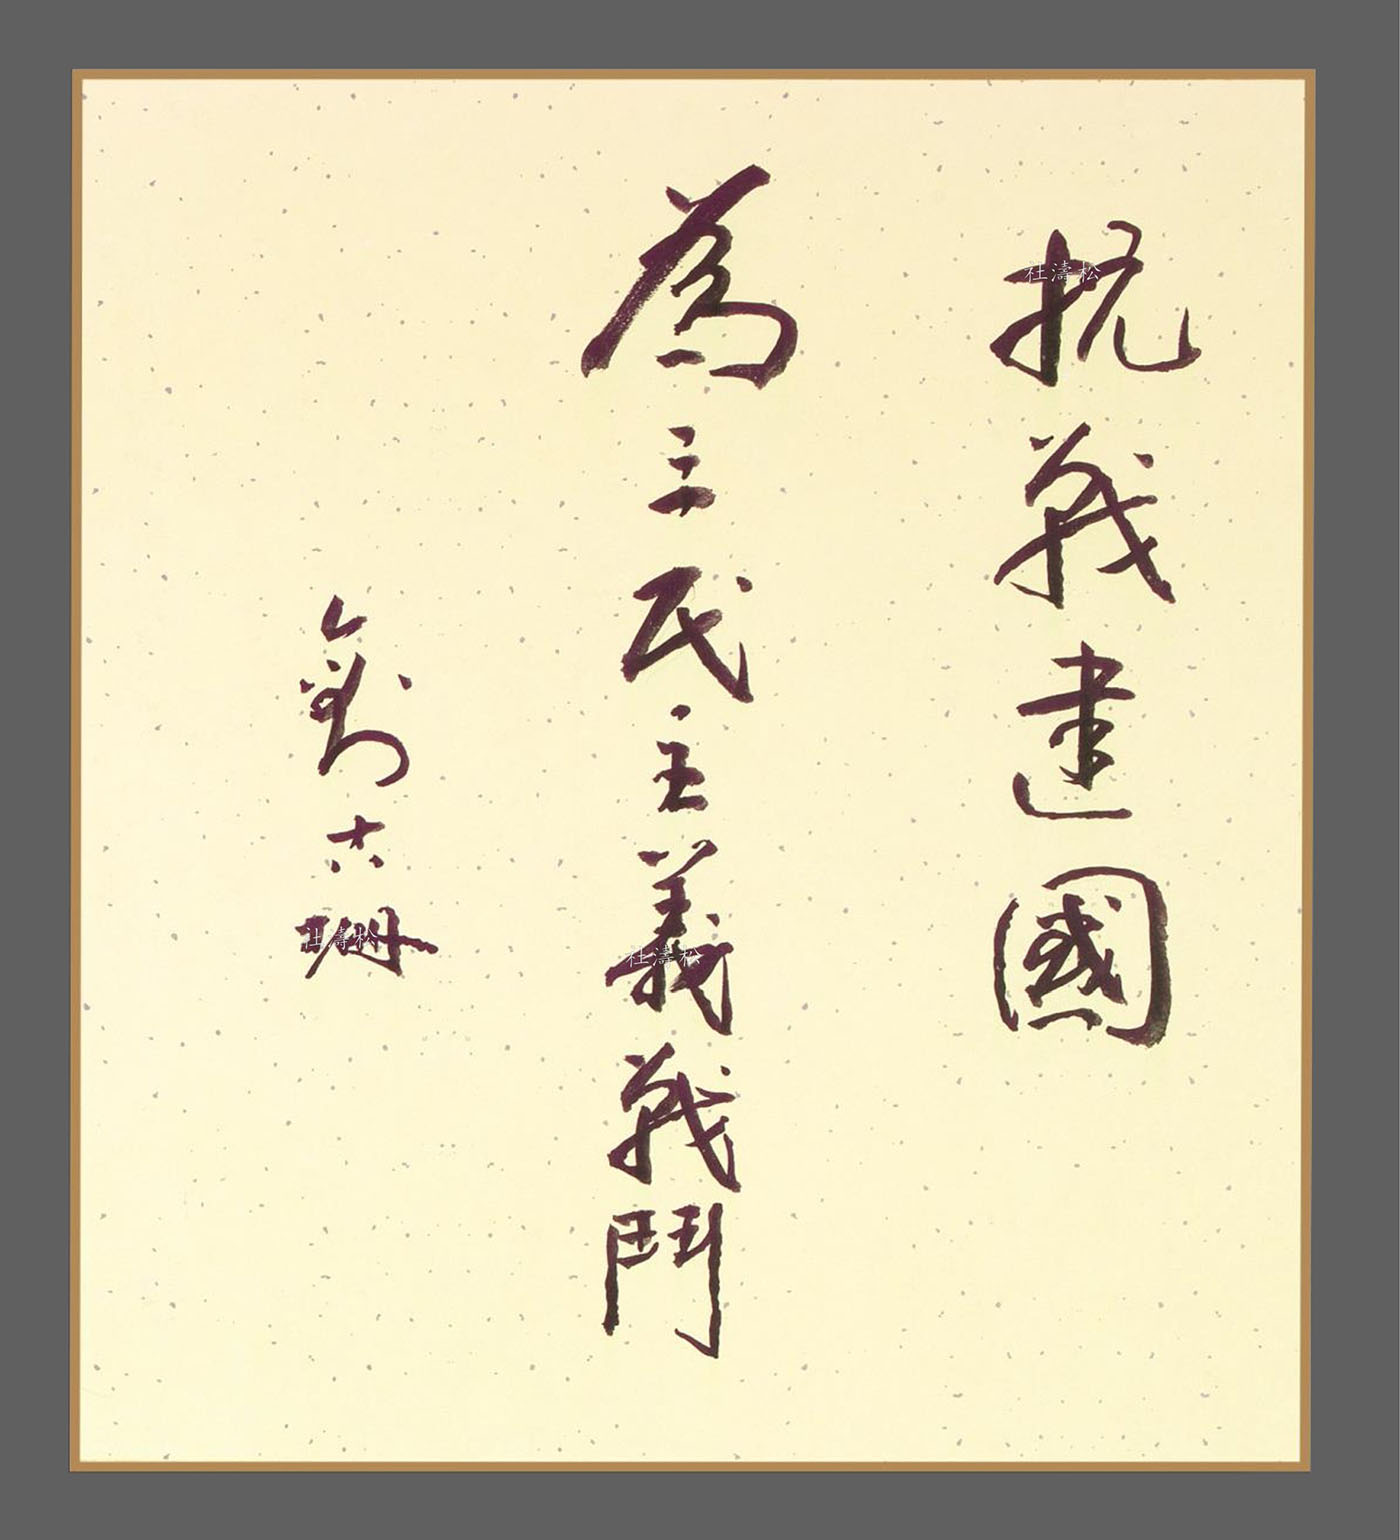 抗戰建國
為三民主義戰鬥
劉 珊
杜濤松
杜濤松
杜濤松